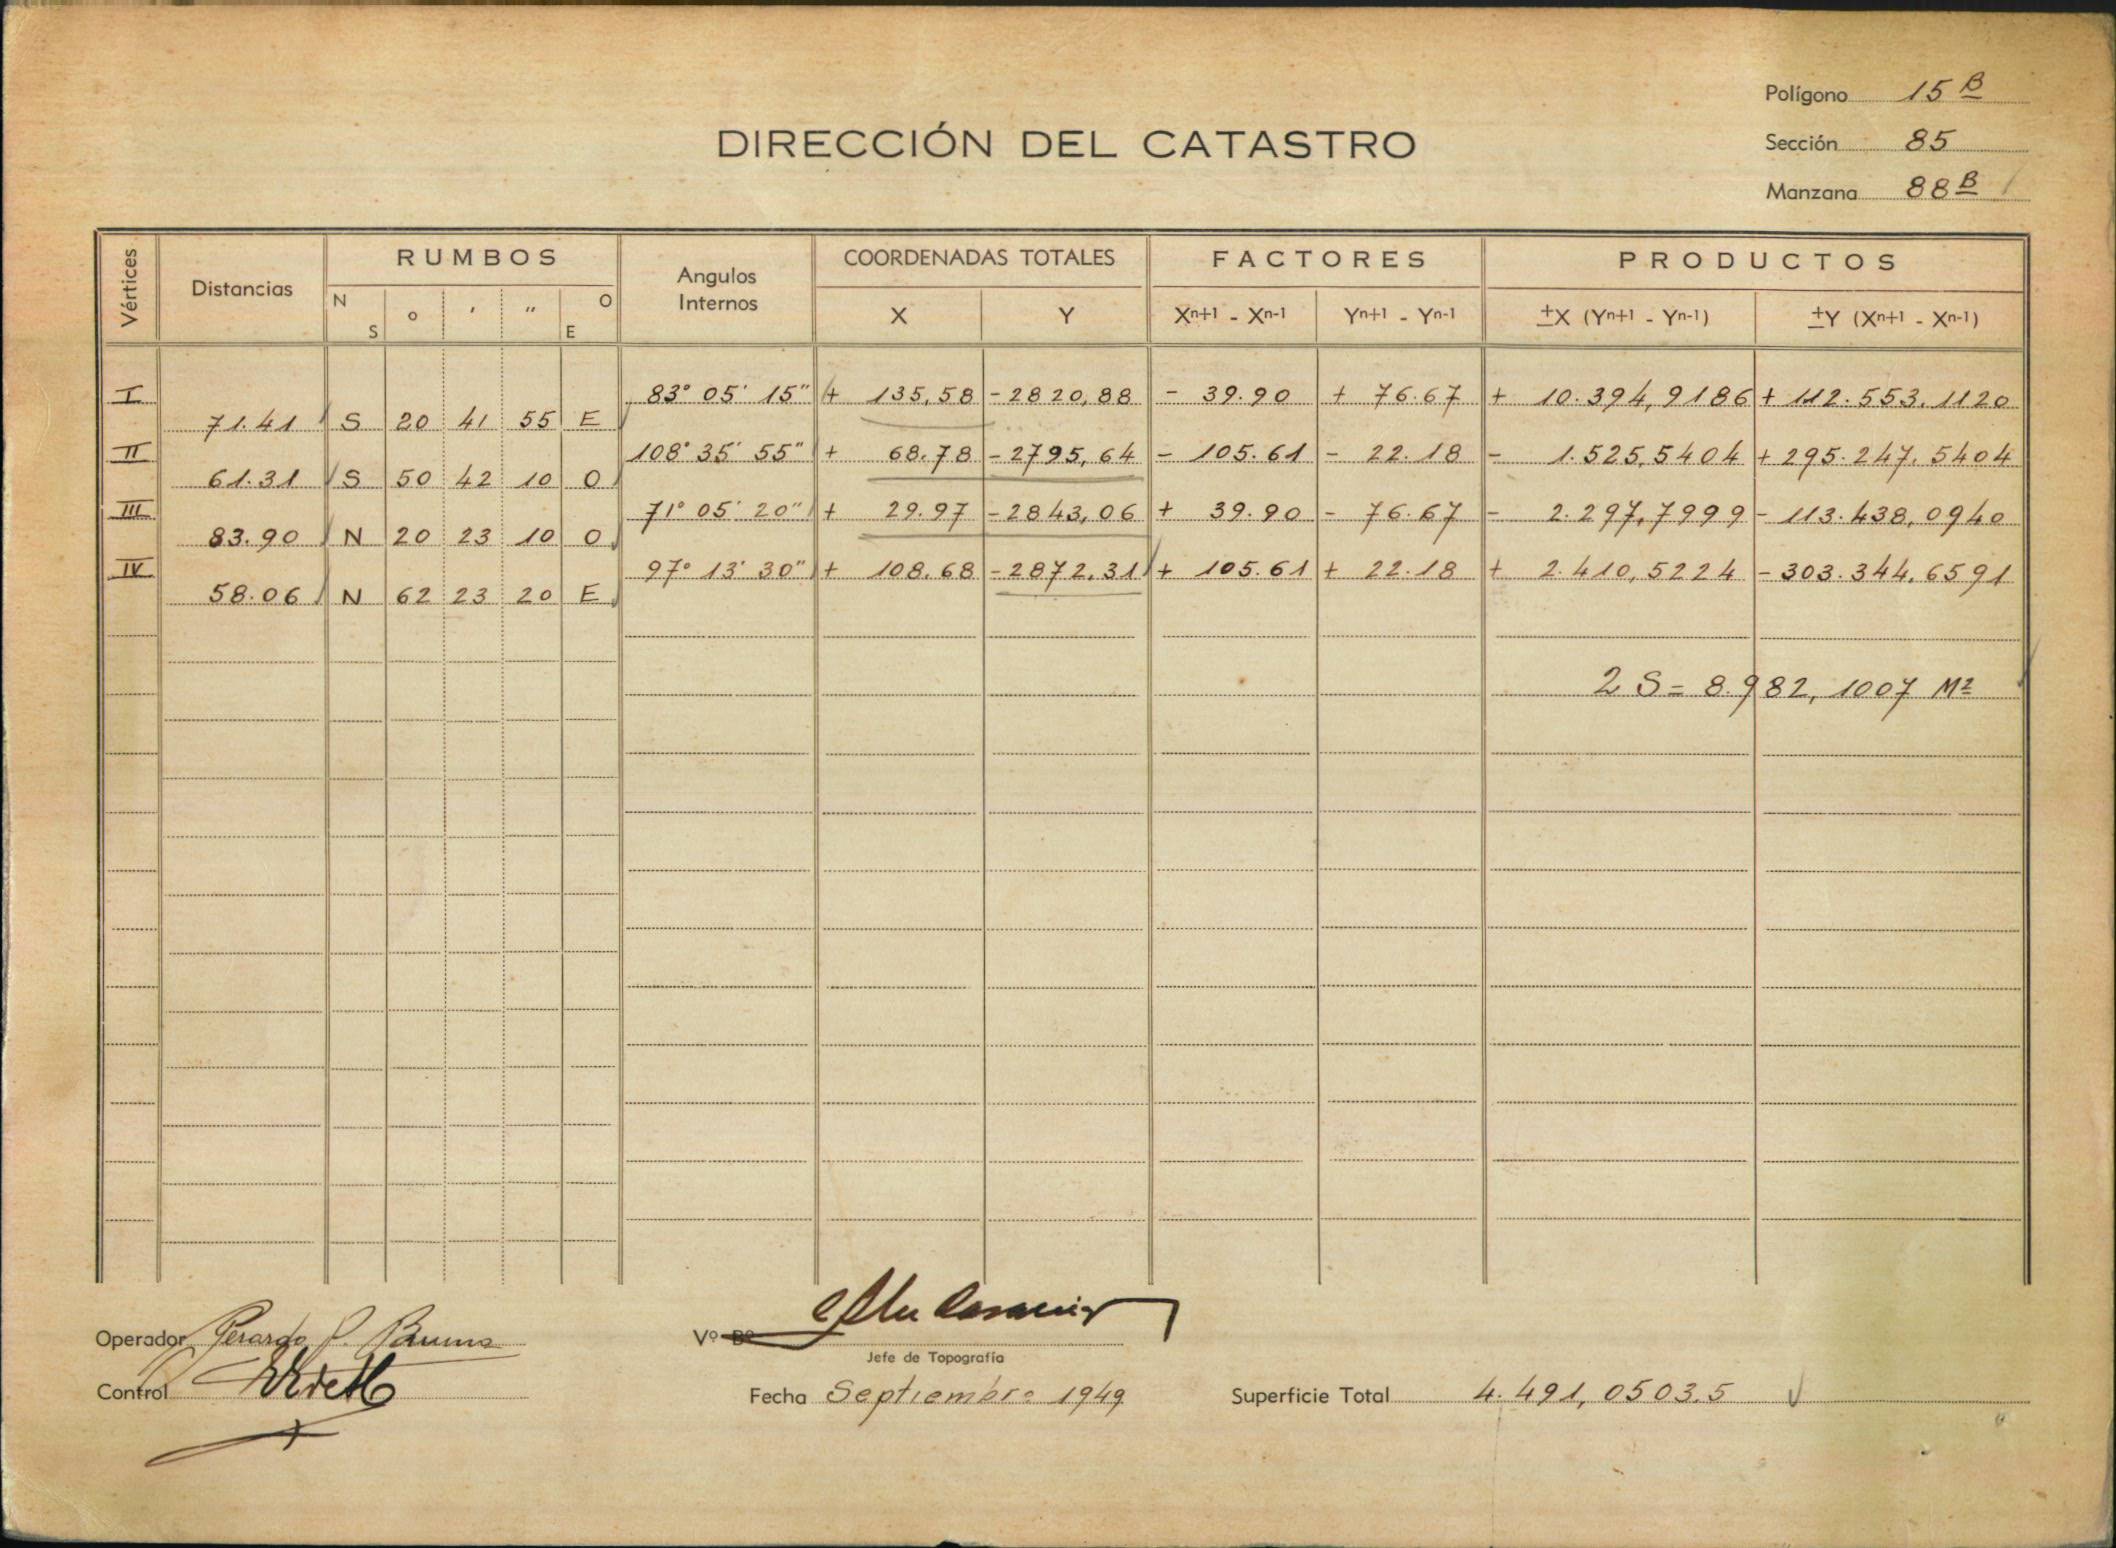 Polígono 15 B
DIRECCIÓN DEL CATASTRO
Sección 85
Manzana 88 B
Vértices Distancias RUMBOS Angulos Internos COORDENADAS TOTALES FACTORES PRODUCTOS
N S ° ' " O E X Y Xn+1 - Xn-1 Yn+1 - Yn-1 ±X (Yn+1 - Yn-1) ±Y (Xn+1 - Xn-1)
I 83° 05' 15" + 135,58 -2820,88 - 39.90 + 76.67 + 10.394,9186 + 112.553.1120
71.41 S 20 41 55 E
II 108° 35' 55" + 68.78 -2795,64 - 105.61 - 22.18 - 1.525,5404 + 295.247.5404
61.31 S 50 42 10 O
III 71° 05' 20" + 29.97 -2843,06 + 39.90 - 76.67 - 2.297,7999 - 113.438,0940
83.90 N 20 23 10 O
IV 97° 13' 30" + 108.68 -2872.31 + 105.61 + 22.18 + 2.410,5224 - 303.344,6591
58.06 N 62 23 20 E
2 S = 8.982,1007 M2
Operador Gerardo
Vº Bº
Jefe de Topografía
Control
Fecha Septiembre 1949
Superficie Total 4.491,0503.5